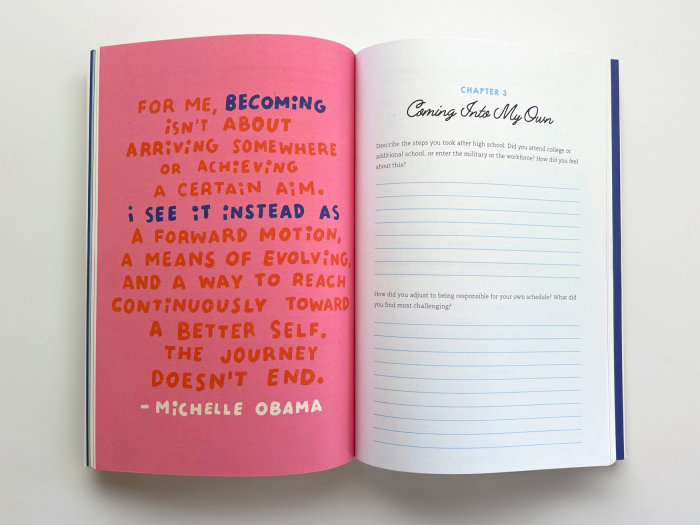 FOR ME, BECOMING
iSN'T ABOUT
ARRiViNG SOMEWHERE
OR ACHiEViNG
A CERTAiN AiM.
i SEE iT iNSTEAD AS
A FORWARD MOTiON,
A MEANS OF EVOLViNG,
AND A WAY TO REACH
CONTiNUOUSLY TOWARD
A BETTER SELF.
THE JOURNEY
DOESN'T END.
- MiCHELLE OBAMA
CHAPTER 3
Coming Into My Own
Describe the steps you took after high school. Did you attend college or
additional school, or enter the military or the workforce? How did you feel
about this?
How did you adjust to being responsible for your own schedule? What did
you find most challenging?